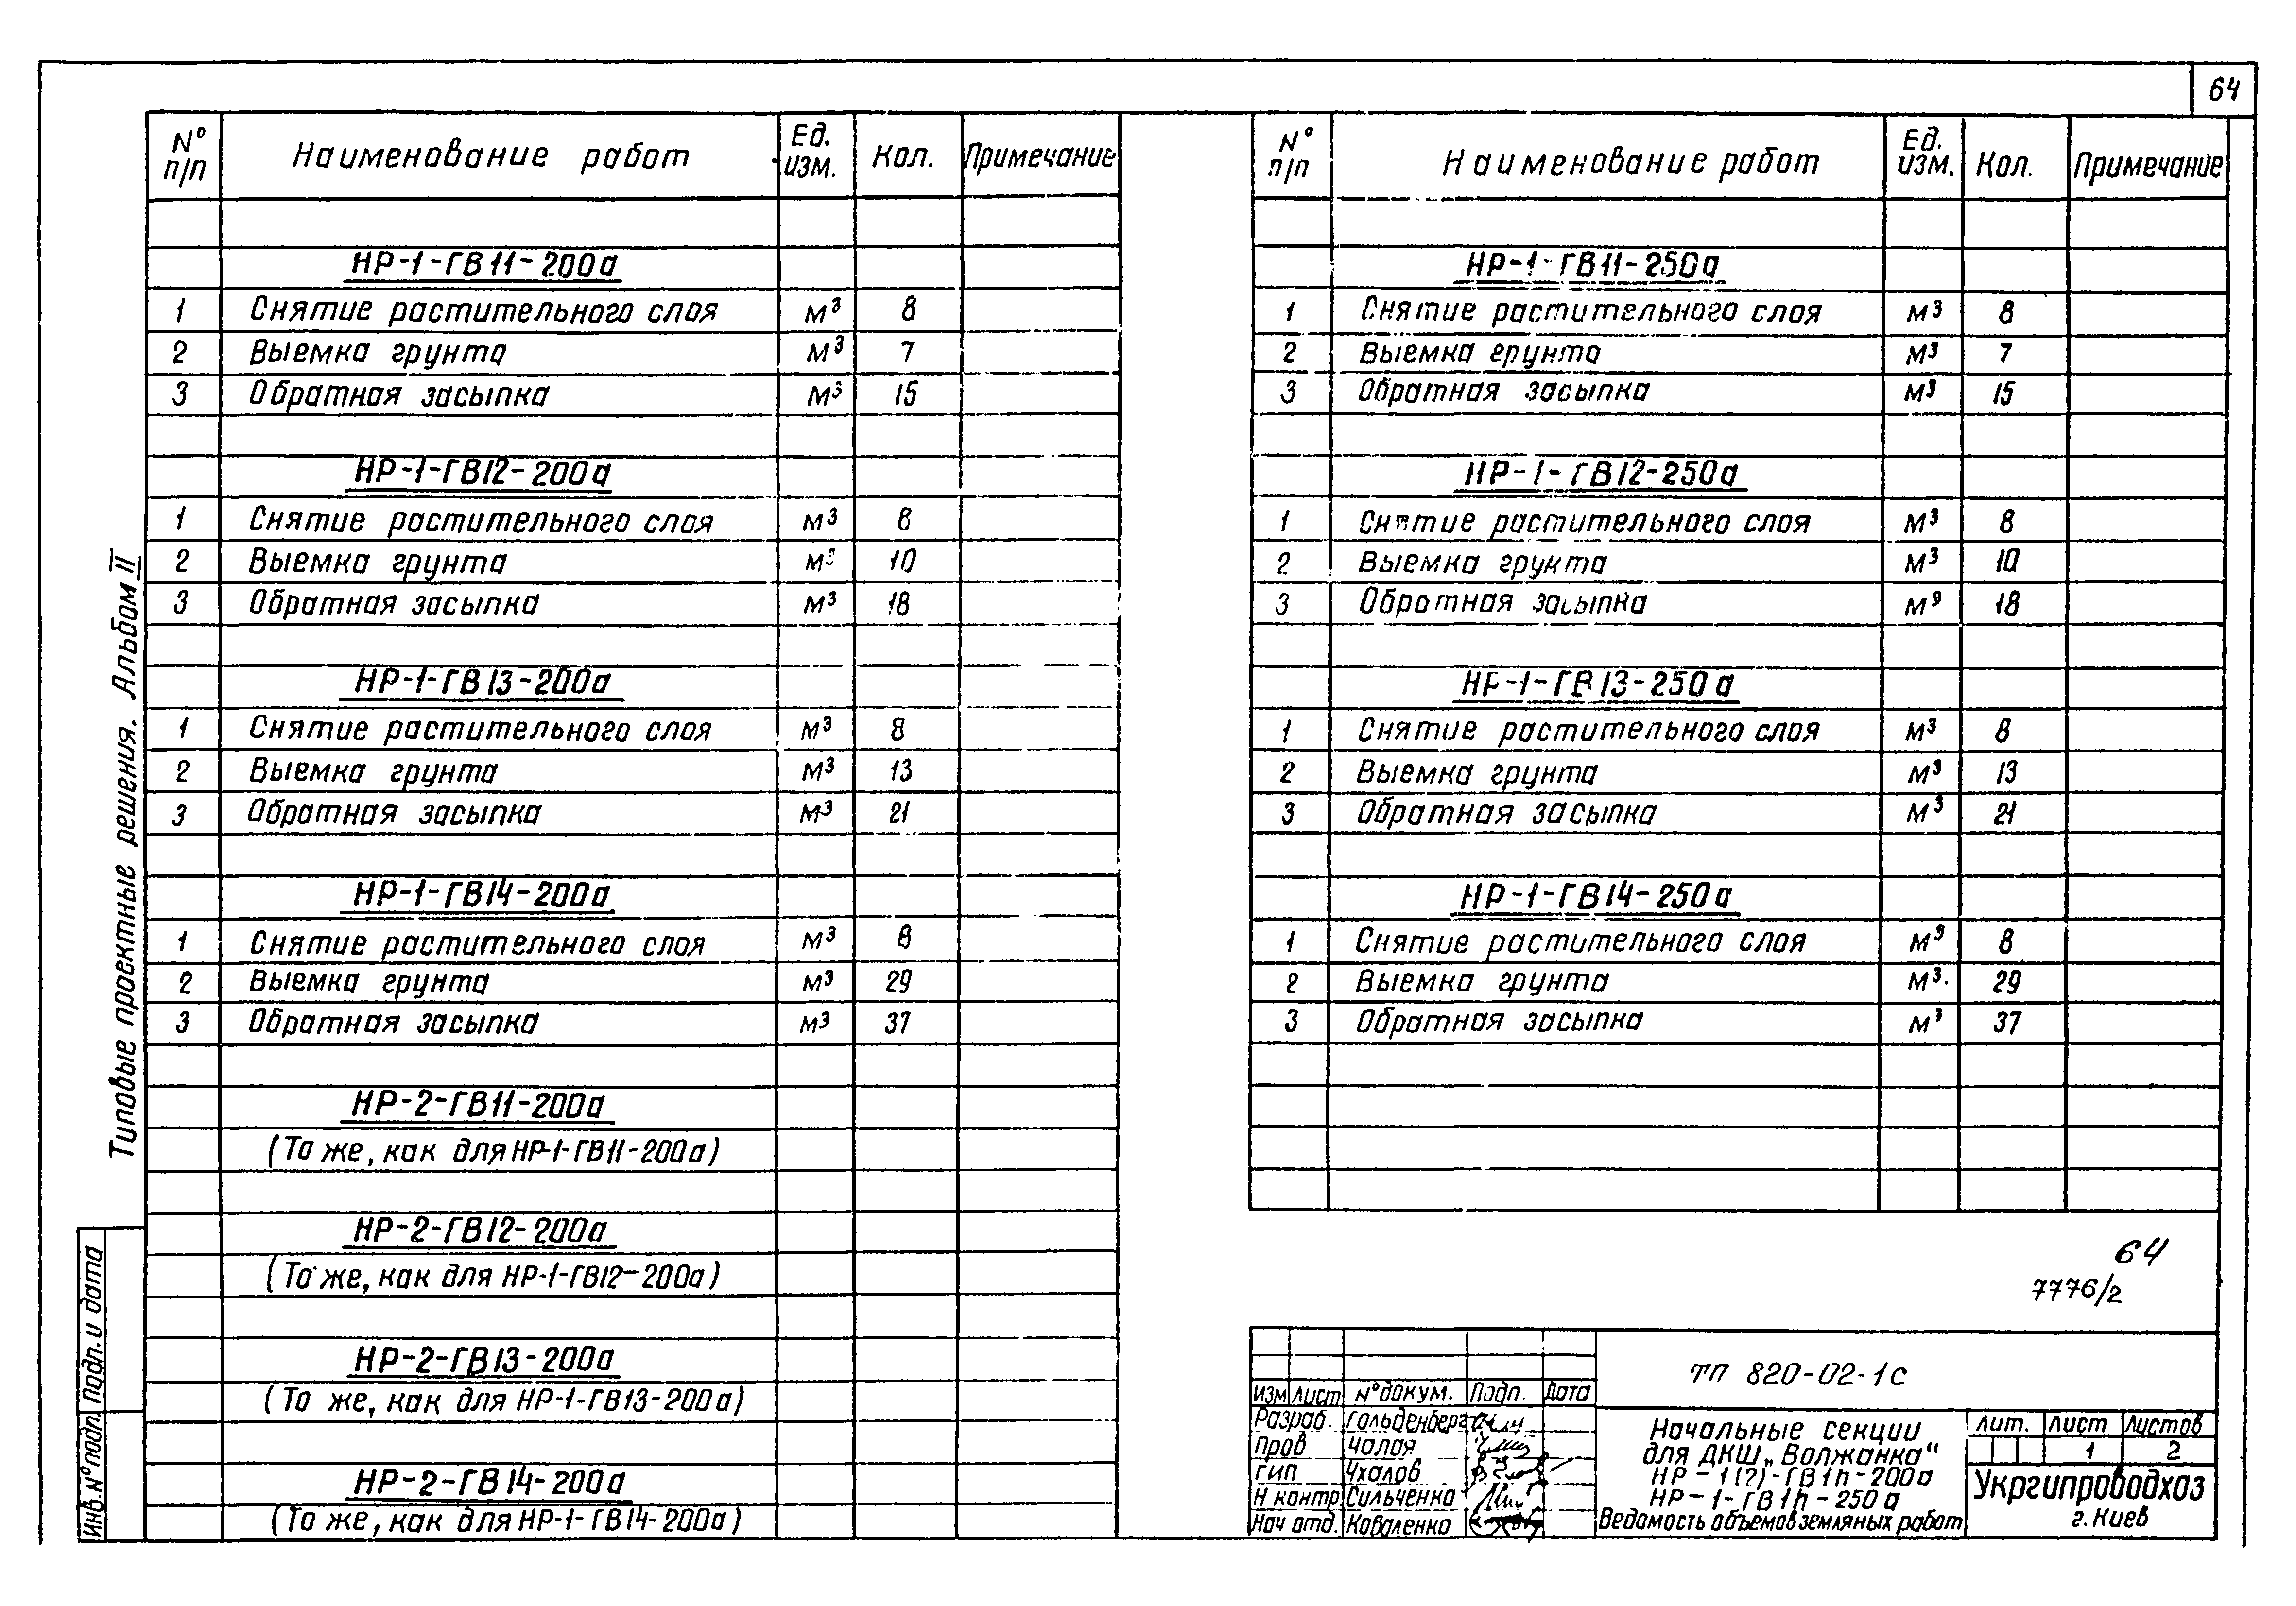 64
Типовые проектные решения. Альбом II
Инв.№ подл. Подп. и дата
№ п/п Наименование работ Ед. изм. Кол. Примечание
НР-1-ГВ11-200а
1 Снятие растительного слоя м³ 8
2 Выемка грунта м³ 7
3 Обратная засыпка м³ 15
НР-1-ГВ12-200а
1 Снятие растительного слоя м³ 8
2 Выемка грунта м³ 10
3 Обратная засыпка м³ 18
НР-1-ГВ13-200а
1 Снятие растительного слоя м³ 8
2 Выемка грунта м³ 13
3 Обратная засыпка м³ 21
НР-1-ГВ14-200а
1 Снятие растительного слоя м³ 8
2 Выемка грунта м³ 29
3 Обратная засыпка м³ 37
НР-2-ГВ11-200а
(То же, как для НР-1-ГВ11-200а)
НР-2-ГВ12-200а
(То же, как для НР-1-ГВ12-200а)
НР-2-ГВ13-200а
(То же, как для НР-1-ГВ13-200а)
НР-2-ГВ14-200а
(То же, как для НР-1-ГВ14-200а)
№ п/п Наименование работ Ед. изм. Кол. Примечание
НР-1-ГВ11-250а
1 Снятие растительного слоя м³ 8
2 Выемка грунта м³ 7
3 Обратная засыпка м³ 15
НР-1-ГВ12-250а
1 Снятие растительного слоя м³ 8
2 Выемка грунта м³ 10
3 Обратная засыпка м³ 18
НР-1-ГВ13-250а
1 Снятие растительного слоя м³ 8
2 Выемка грунта м³ 13
3 Обратная засыпка м³ 21
НР-1-ГВ14-250а
1 Снятие растительного слоя м³ 8
2 Выемка грунта м³ 29
3 Обратная засыпка м³ 37
64
7776/2
ТП 820-02-1с
Изм Лист № докум. Подп. Дата
Разраб. Гольденберг
Пров Чалая
ГИП Чхалов
Н контр Сильченко
Нач отд. Коваленко
Начальные секции
для ДКШ „Волжанка“
НР-1(2)-ГВ1п-200а
НР-1-ГВ1п-250а
Ведомость объемов земляных работ
Лит. Лист Листов
1 2
Укргипроводхоз
г. Киев